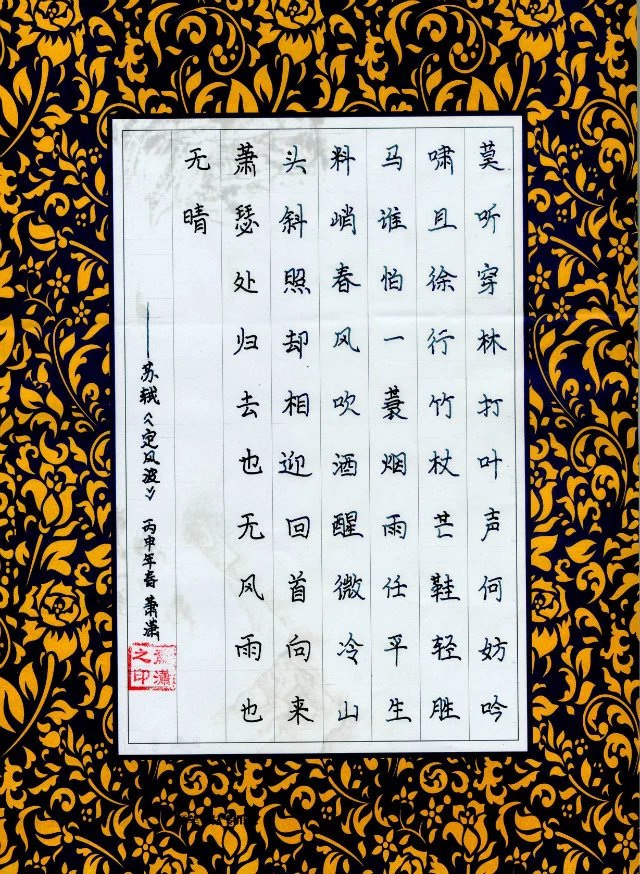 莫听穿林打叶声何妨吟
啸且徐行竹杖芒鞋轻胜
马谁怕一蓑烟雨任平生
料峭春风吹酒醒微冷山
头斜照却相迎回首向来
萧瑟处归去也无风雨也
无晴
——苏轼《定风波》 丙申年春 萧潇
萧潇之印